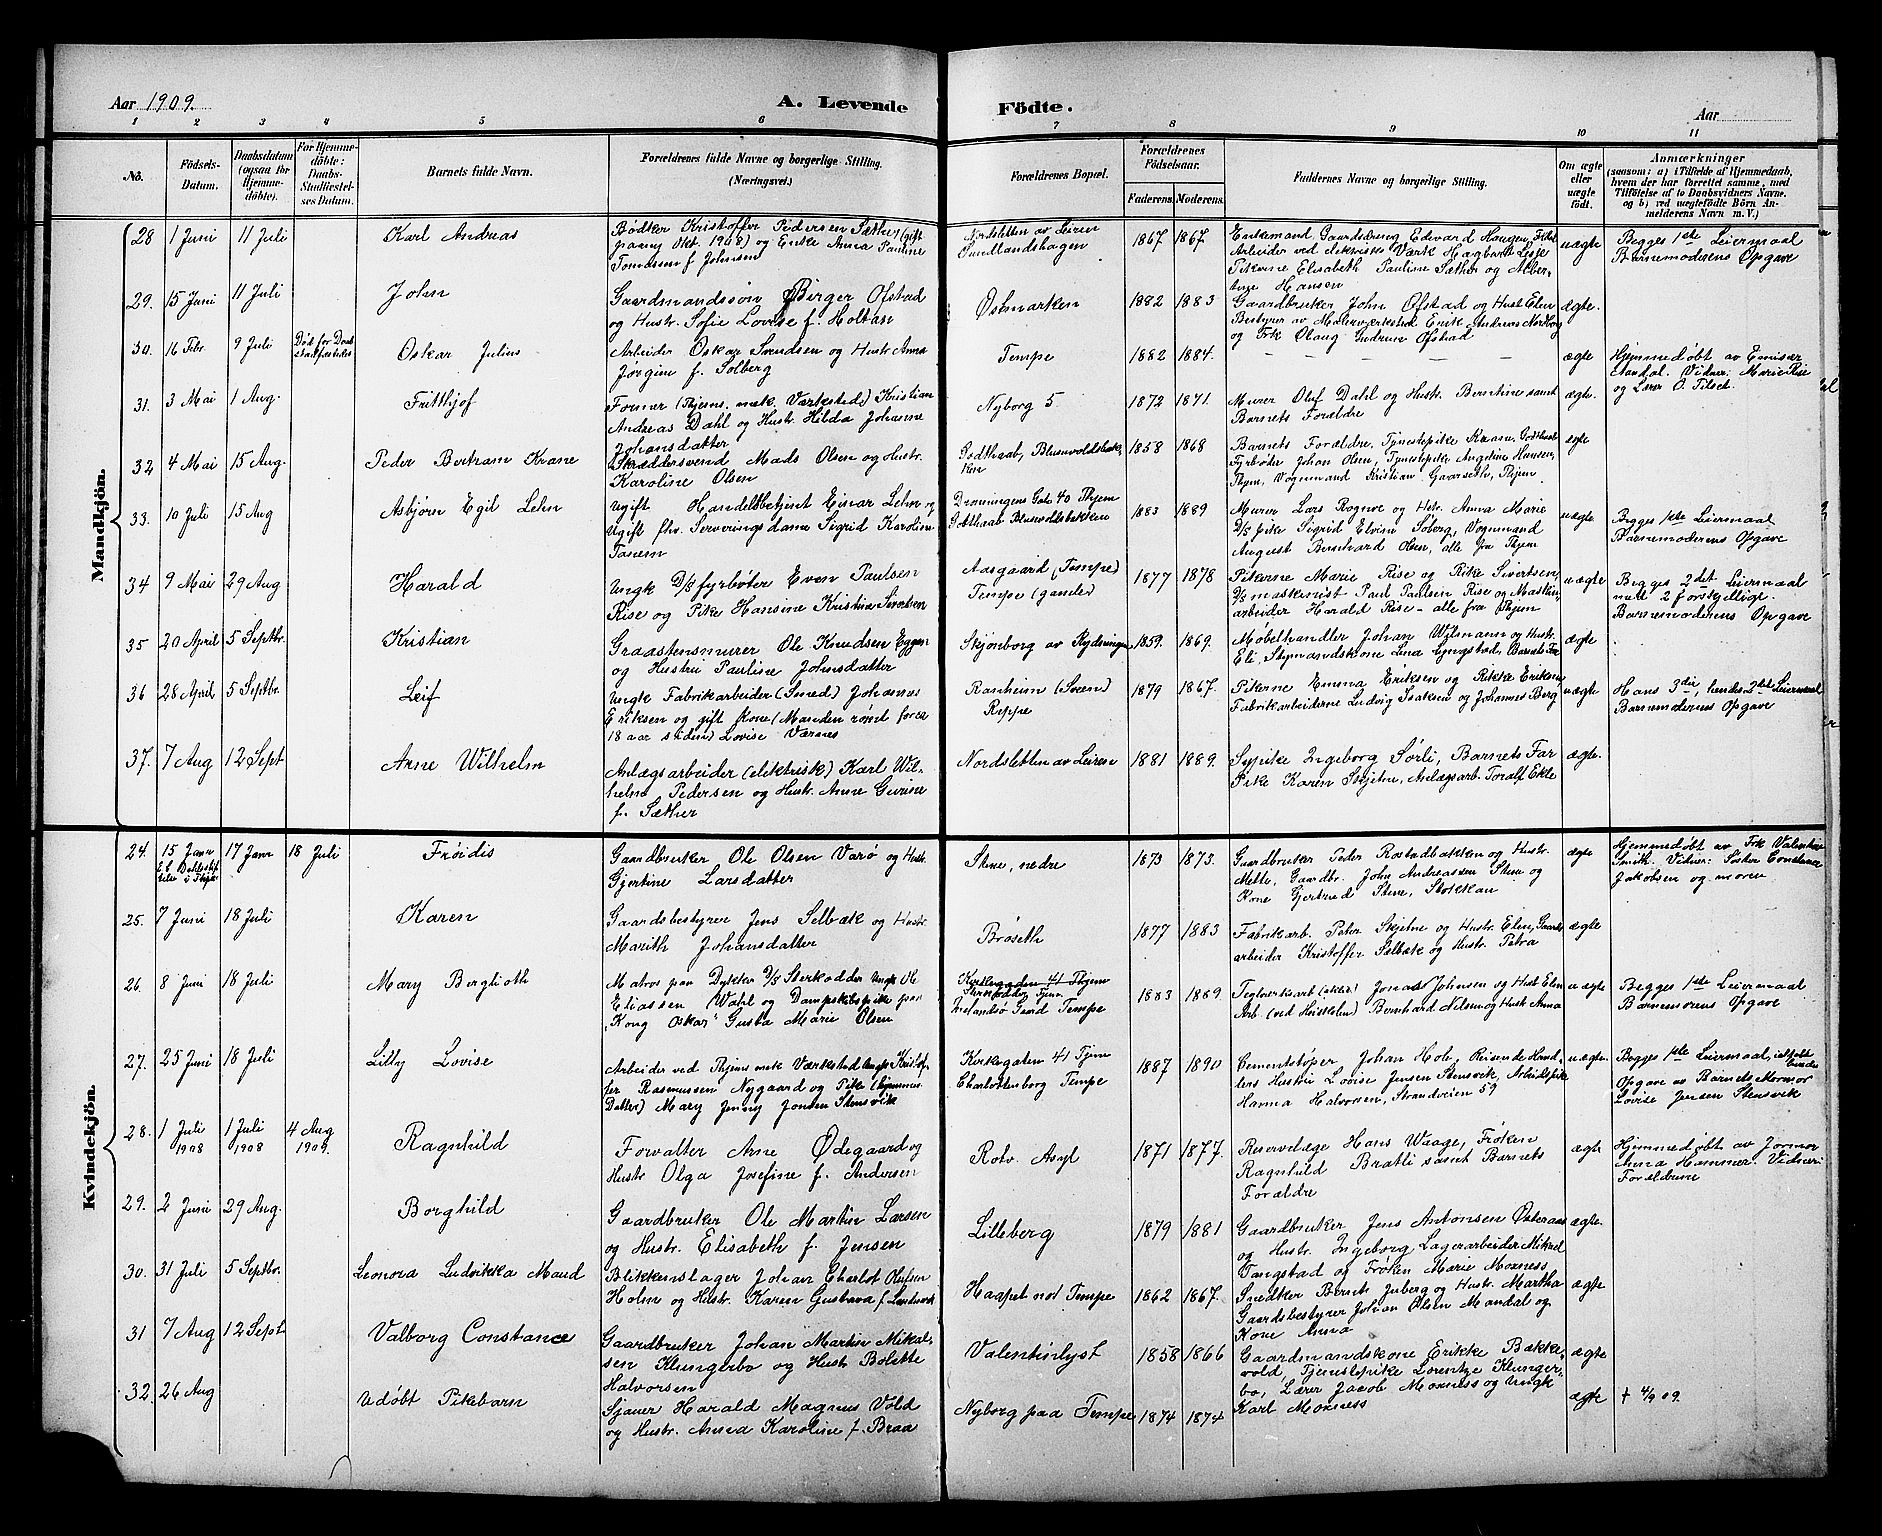 Aar 1909.
A. Levende Födte.
Aar
1 2 3 4 5 6 7 8 9 10 11
No.
Födsels-Datum.
Daabsdatum (ogsaa for Hjemmedöbte).
For Hjemmedöbte: Daabs-Stadfæstelses Datum.
Barnets fulde Navn.
Forældrenes fulde Navne og borgerlige Stilling. (Næringsvei.)
Forældrenes Bopæl.
Forældrenes Födselsaar.
Faderens. Moderens.
Faddernes Navne og borgerlige Stilling.
Om ægte eller uægte födt.
Anmærkninger (saasom: a) i Tilfælde af Hjemmedaab, hvem der har forrettet samme, med Tilföielse af to Daabsvidners Navne. og b) ved uægtefödte Börn Anmelderens Navn m. V.)
Mandkjön.
28 1 Juni 11 Juli Karl Andreas
Bødker Kristoffer Pedersen Sæther (gift
paany Okt. 1908) og Enke Anna Pauline
Tomassen f. Johnsen
Nordsletten av Leiren
Sundlandshagen
1867 1867.
Enkemand Gaardsdreng Edvard Haugen,
Arbeider ved elektriske Værk Hagbart
Pikerne Elisabeth Pauline Sæther og Alber-
tine Hansen
uægte
Begges 1ste Leiermaal
Barnemoderens Opgave
29. 15 Juni 11 Juli John
Gaardmandssøn Birger Ofstad
og Hustr. Sofie Lovise f. Holtan
Østmarken
1882 1883
Gaardbruker John Ofstad og Hust Elen
Bestyrer av Enik Andreas Nordborg
og Frk Olaug Gudrun Ofstad
ægte.
30. 16 Febr. 9 Juli Død før Daab
stadfæstedes
Oskar Julius
Arbeider Oskar Svendsen og Hustr Anna
Jørgine f. Solberg
Tempe
1882 1884.
— — — — — —
ægte
Hjemmedøbt av Emisær
Vidner: Marie Rise
og Lærer O Tilset
31. 3 Mai 1 Aug. Frithjof
Former (Thjems. mek. Værksted) Kristian
Andreas Dahl og Hustr Hilda Johanne
Johansdatter
Nyborg 5
1872 1871.
Murer Olef Dahl og Hustr. Berntine samt
Barnets Forældre
ægte.
32 4 Mai 15 Aug. Peder Bertram Krane
Skræddersvend Mads Olsen og Hustr.
Karoline Olsen
Godthaab, Blusuvoldsbak-
ken
1858 1868
Barnets Forældre, Tjenestepike Krane,
Fyrbøter Johan Olsen, Tjenestepike Angeline Hansen,
Thjem, Vognmand Kristian Gaarseth, Thjem
ægte
33. 10 Juli 15 Aug Asbjørn Egil Lehn
Ugift Handelsbetjent Einar Lehn og
Ugift fhv. Serveringsdame Sigrid Karoline
Tanem
Dronningens Gate 40 Thjem
Gothaab Blusuvoldsbakken
1883 1889
Murer Lars Rognve og Hstr. Anna Marie
D/S pike Sigrid Elvine Soberg, Vognmand
August Bernhard Olsen, alle fra Thjem
uægte
Begges 1ste Leiermaal
Barnemoderens Opgave
34 9 Mai 29 Aug Harald
Ungk D/S fyrbøter Even Paulsen
Rise og Pike Hansine Kristine Sivertsen
Aasgaard (Tempe)
Tempe (gamle)
1877 1878
Pikerne Marie Rise og Rike Sivertsen,
D/S maskinist Paul Paulsen Rise og Maskin-
arbeider Harald Rise - alle fra Thjem
uægte
Begges 2det Leiermaal
med 2 forskjellige.
Barnemoderens Opgave
35 20 April 5 Septbr. Kristian
Graastensmurer Ole Knudsen Eggen
og Hustru Pauline Johnsdatter
Skjønborg av Rydningen
1859. 1869.
Møbelhandler Johan Wilmann og Hustr.
Eli, Styrmandskone Lina Lyngstad, Barnets Far
ægte
36 28 April 5 Septbr. Leif
Ungk Fabrikarbeider (Smed) Johannes
Eriksen og gift Kone (Manden rømt for ca
18 aar siden) Lovise Værnes
Ranheim (Sveen)
Reppe
1879 1867.
Pikerne Emma Eriksen og Rikke Eriksen
Fabrikarbeiderne Ludvig Isaksen og Johannes Berg
uægte
Hans 3die, hendes 2det Leiermaal
Barnemoderens Opgave
37. 7 Aug 12 Sept Arne Wilhelm
Anlægsarbeider (elektrisk) Karl Wil-
helm Pedersen og Hustr. Anne Gurine
f. Sæther
Nordsletten av Leirene
1881 1889.
Sypike Ingeborg Sørli, Barnets Far
Pike Karen Skjetne, Anlægsarb. Toralf Ekle
ægte.
Kvindekjön.
24. 15 Janr 17 Janr 18 Juli Frøidis
Gaardbruker Ole Olsen Varø og Hustr.
Gjertine Larsdatter
Stene, nedre
1873 1873.
Gaardbruker Peder Rostadbakken og Hustr.
Mette, Gaardbr. John Andreassen Stene og
Kone Gjertrud Stene, Stokkan
ægte
Hjemmedøbt av Frk Valentine
Smith. Vidner: Søster Constance
Jakobsen og moren
25. 7 Juni 18 Juli Karen
Gaardsbestyrer Jens Selbæk og Hustr.
Marith Johansdatter
Brøseth
1877 1883
Fabrikarb. Peter Skjetne og Hustr. Elen, Gaards
arbeider Kristoffer Selbæk og Hustr. Petra
ægte
26. 8 Juni 18 Juli Mary Berglioth
Matros paa Dykker D/S Sterkodder Ungk Ole
Eliassen Wahl og Dampskibspike paa
"Kong Oskar" Gusta Marie Olsen
Kirkegaden 41 Thjem
Tempe
1883 1889.
Teglverksarb (elektr.) Jonas Johnsen og Hust Elen
Arb. Bernhard Nilsen og Hust Anna
uægte
Begges 1ste Leiermaal
Barnemorens Opgave
27. 25 Juni 18 Juli Lilly Lovise
Arbeider ved Thjems mek Værksted Ungk Kristof-
fer Rasmussen Nygaard og Pike (hjemmev.
Datter) Mary Jenny Jensen Stensvik
Kirkegaten 41 Tjem
Charlottenborg Tempe
1887 1890
Cementstøper Johan Hole, Reisende Hand-
lers Hustru Lovise Jensen Stensvik, Arbeidspike
Hanna Halvorsen, Strandveien 59
uægte.
Begges 1ste Leiermaal,
Opgave av Barnets Mormor
Lovise Jensen Stensvik
28. 1 Juli 1908 1 Juli 1908 4 Aug 1909. Ragnhild
Forvalter Arne Ødegaard og
Hustr Olga Josefine f. Andersen
Rotv. Asyl
1871 1877.
Reservelæge Hans Waage, Frøken
Ragnhild Bratli samt Barnets
Forældre
ægte
Hjemmedøbt av Jormor
Anna Hammer. Vidner:
Forældrene
29. 2 Juni 29 Aug. Borghild
Gaardbruker Ole Martin Larsen
og Hustr. Elisabeth f. Jensen
Lilleberg
1879 1881
Gaardbruker Jens Antonsen Østeraas
og Hustr. Ingeborg, Lagerarbeider Mikael
Tangstad og Frøken Marie Moxness
ægte.
30. 31 Juli 5 Septbr. Leonora Ludvikka Maud
Blikkenslager Johan Charlot Olufsen
Holm og Hustr. Karen Gustava f. Landsvik
Haapet nol Tempe
1862 1867.
Snedker Bernt Juberg og Hustr. Martha
Gaardsbestyrer Johan Olsen Mandal og
Kone Anna
ægte
31 7 Aug 12 Sept Valborg Constance
Gaardbruker Johan Martin Mikal-
sen Klungerbo og Hustr Bolette
Halvorsen
Valentinlyst
1858 1866
Gaardmandskone Erikke Bakke-
vold, Tjenestepike Lorentze Klunger-
bo, Lærer Jacob Moxness og Ungk
Karl Moxness
ægte
32. 26 Aug Udøbt Pikebarn
Sjauer Harald Magnus Vold
og Hustr. Anna Karoline f. Braa
Nyborg paa Tempe
1874 1874
ægte
† 4/9 09.